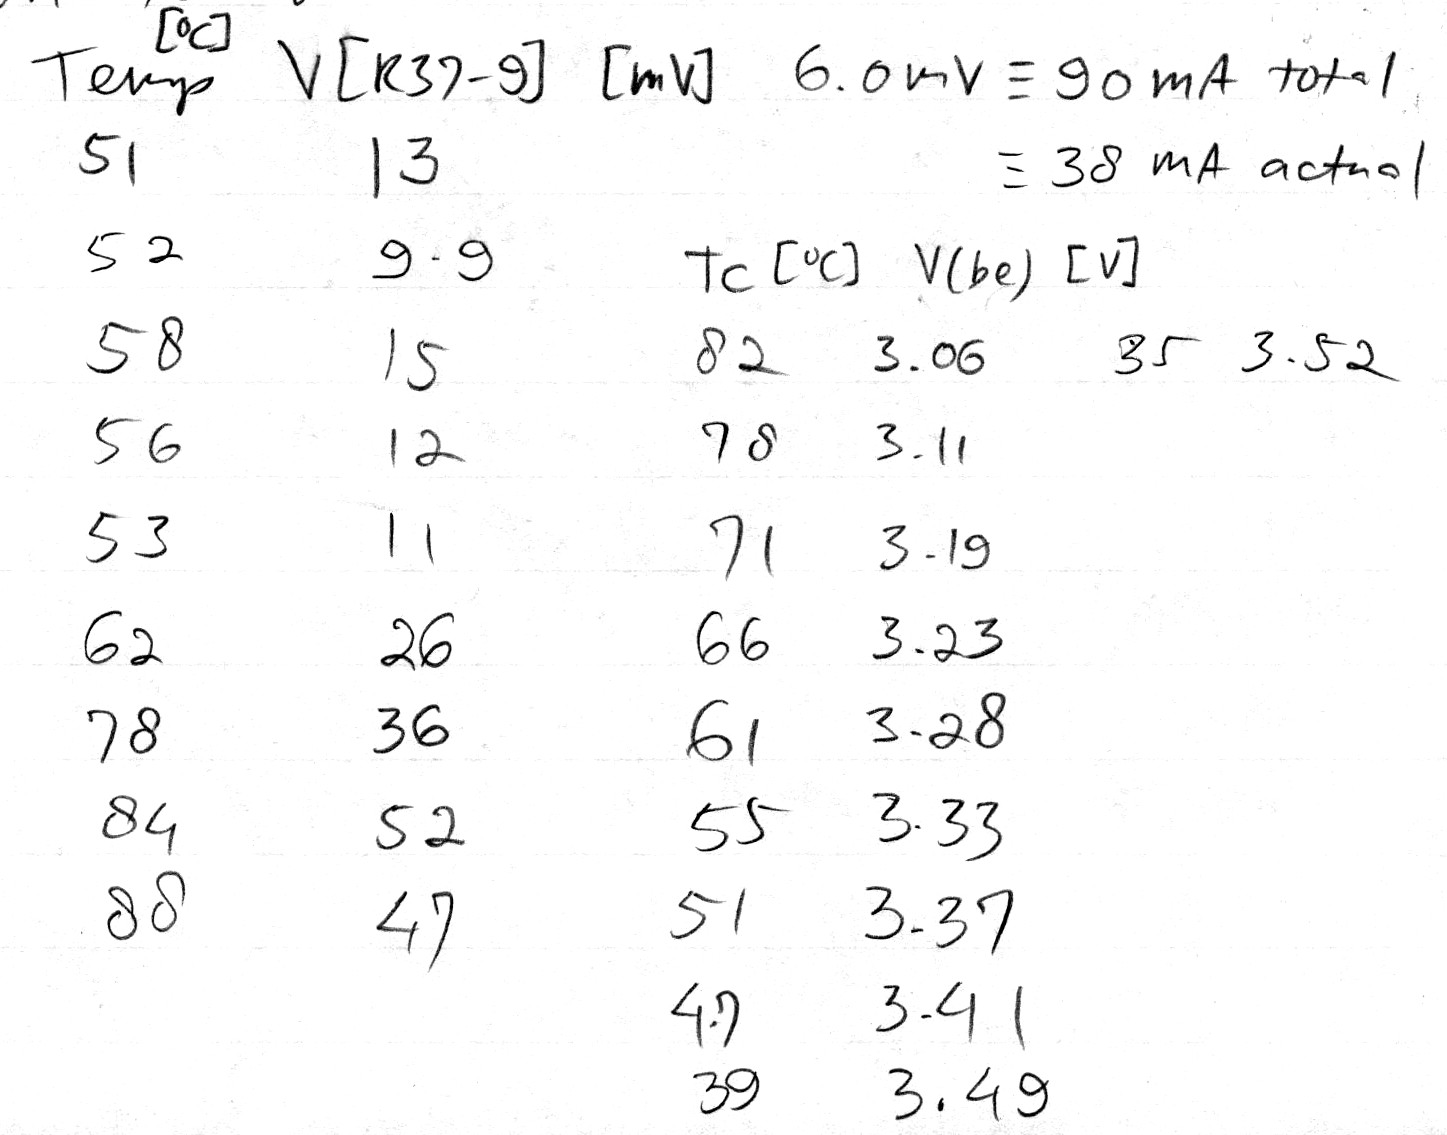 Temp [°C] V[R37-9] [mV] 6.0mV ≡ 90 mA total
51 13 ≡ 38 mA actual
52 9.9 Tc [°C] V(be) [V]
58 15 82 3.06 35 3.52
56 12 78 3.11
53 11 71 3.19
62 26 66 3.23
78 36 61 3.28
84 52 55 3.33
88 47 51 3.37
47 3.41
39 3.49